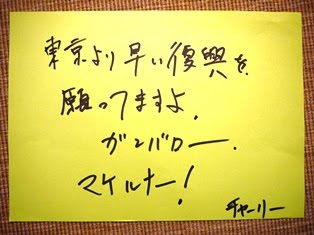 東京より早い復興を
願ってますよ.
ガンバロー.
マケルナー!
チャーリー